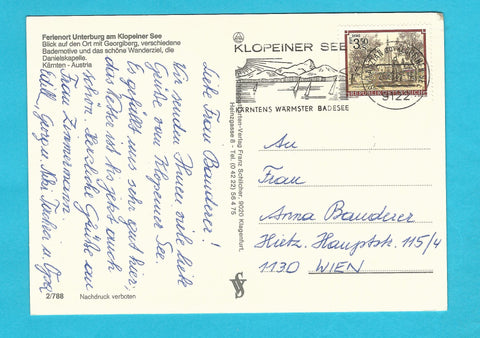 Ferienort Unterburg am Klopeiner See
Blick auf den Ort mit Georgiberg, verschiedene
Bademotive und das schöne Wanderziel, die
Danielskapelle.
Kärnten - Austria
KLOPEINER SEE
KÄRNTENS WÄRMSTER BADESEE
S 3.50
REPUBLIK ÖSTERREICH
9122
Verlag Franz Schilcher, 9020 Klagenfurt,
Heinzgasse 8 - Tel. (0 42 22) 56 4 75
Liebe Frau Bauderer!
Wir senden Ihnen viele liebe
Grüße vom Klopeiner See.
Es gefällt uns sehr gut hier,
das Wetter ist bis jetzt auch
schön. Herzliche Grüße an
Frau Zimmermann.
Willi, Georg u.
An
Frau
Anna Bauderer
Hietz. Hauptstr. 115/4
1130 WIEN
2/788
Nachdruck verboten